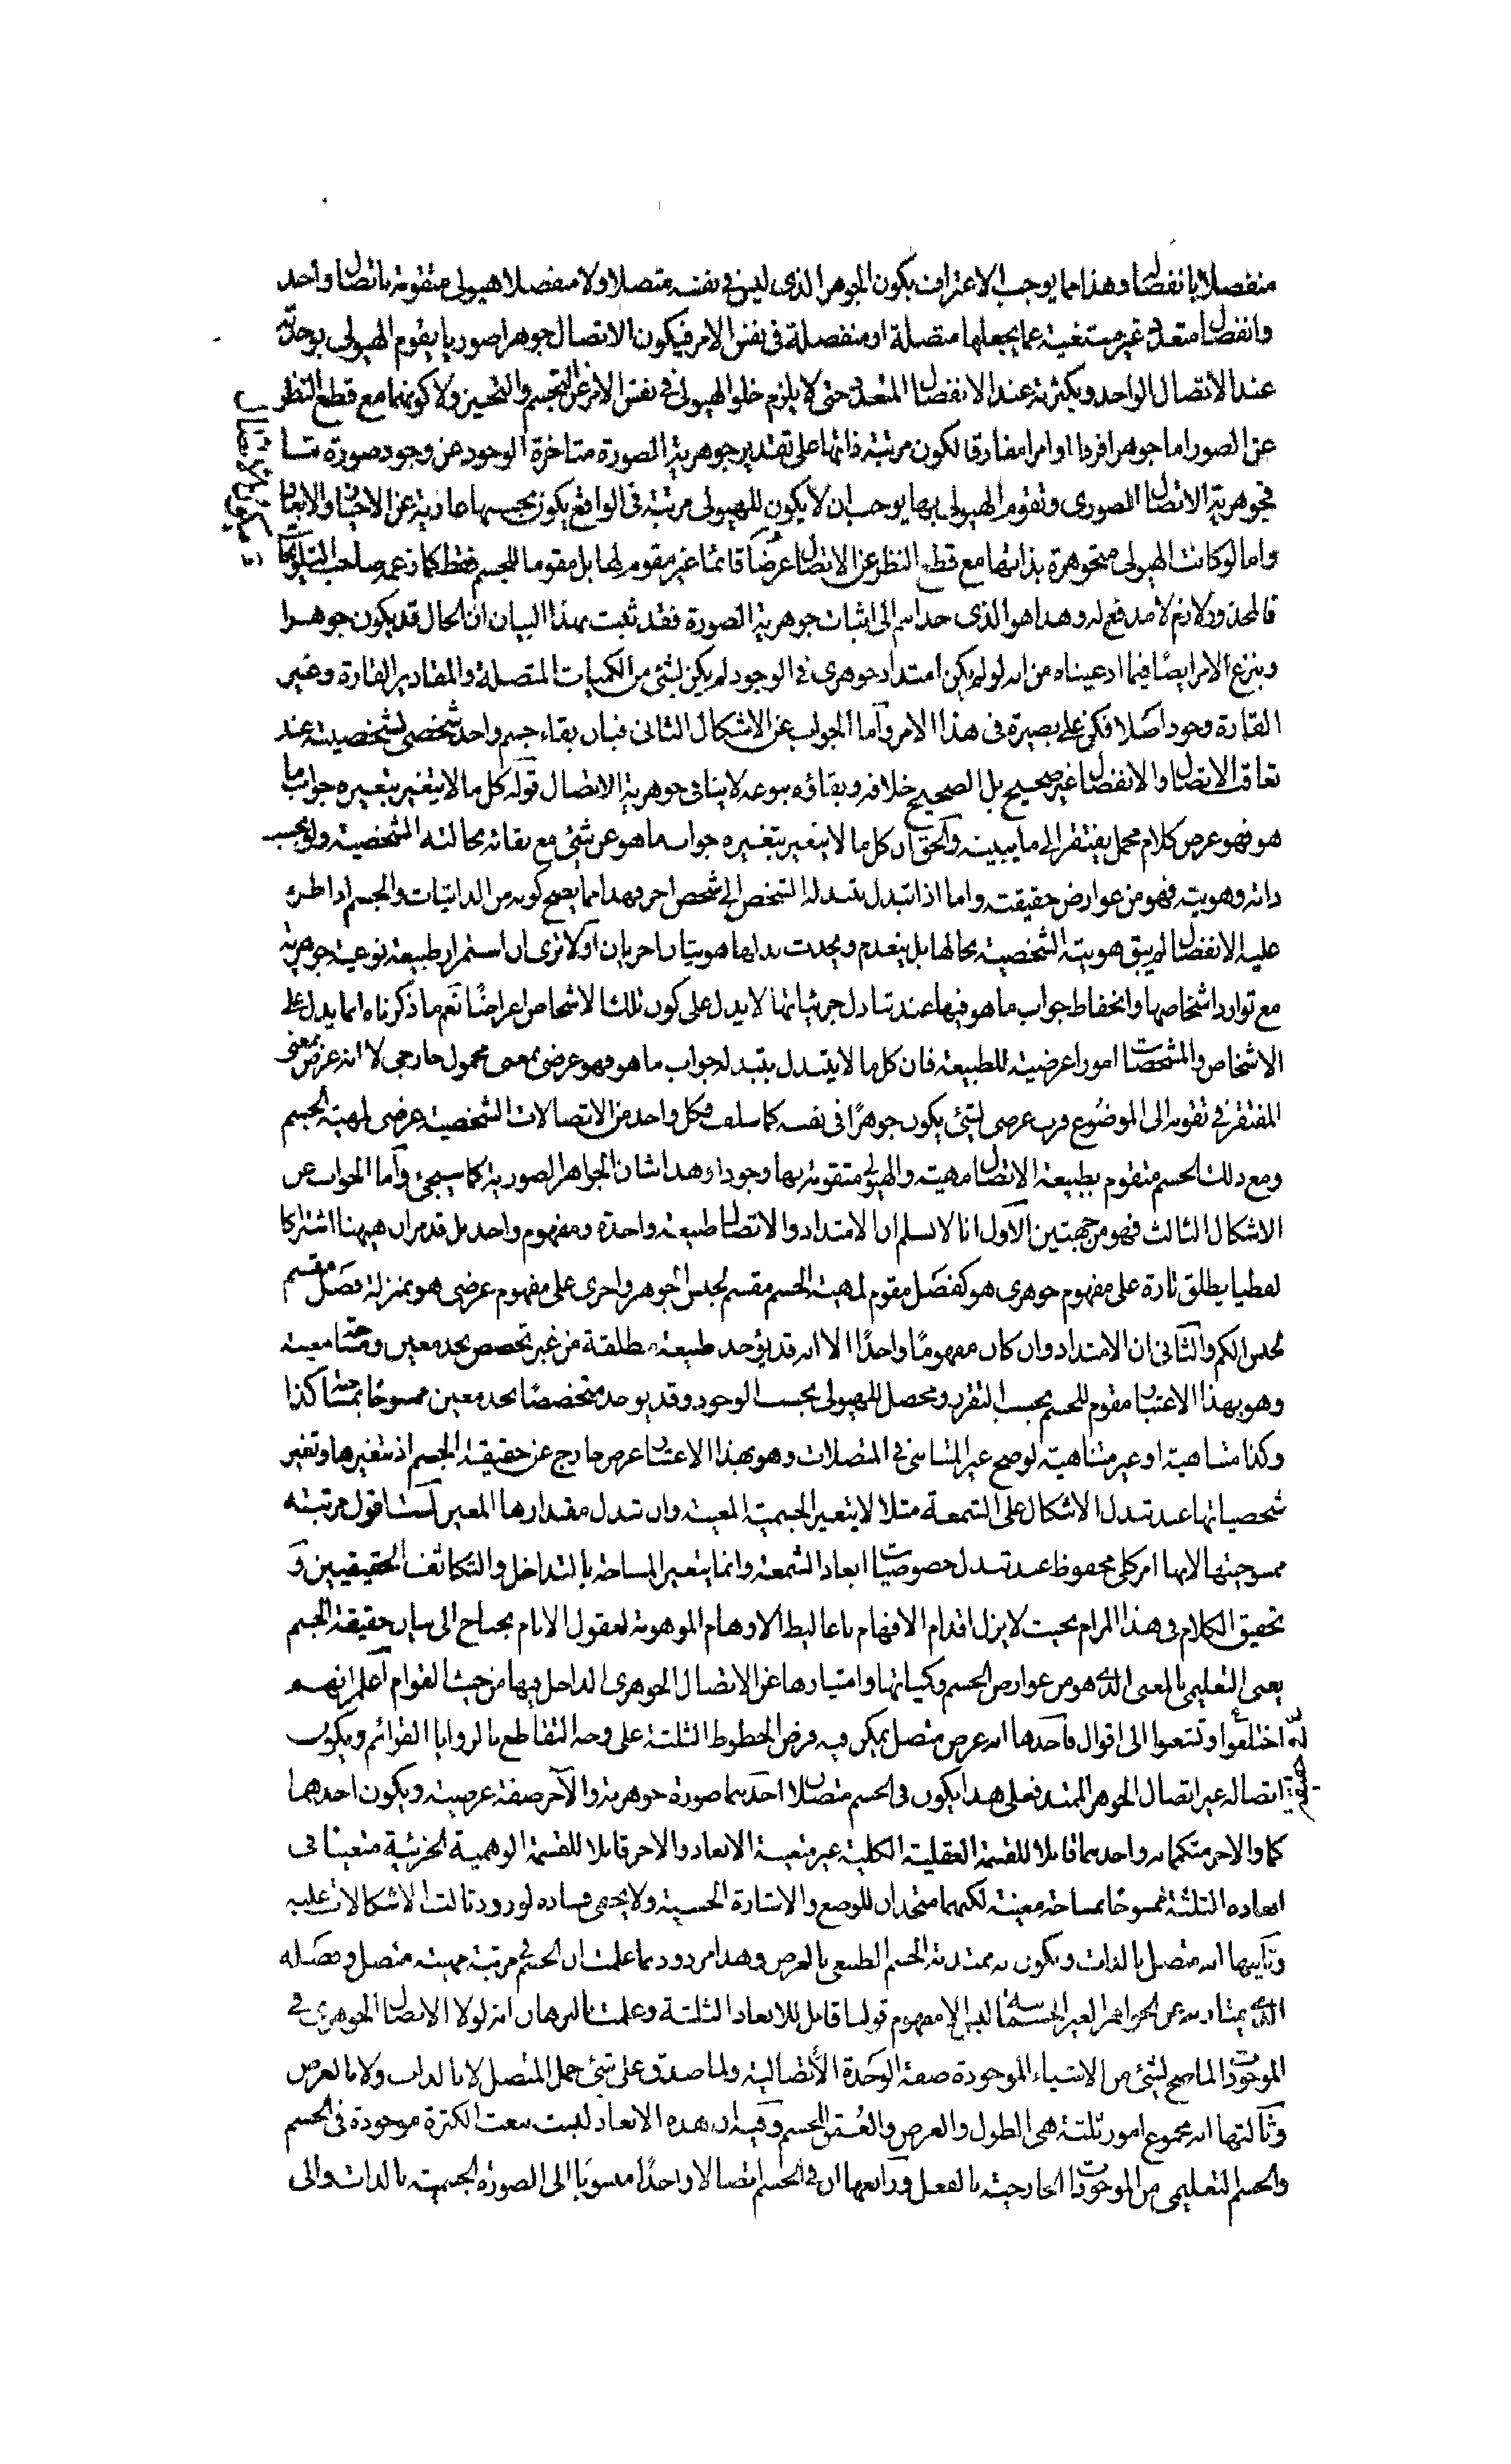 منفصلا بانفصال وهذا مما يوجب الاعتراف بكون الجوهر الذى ليس فى نفسه متصلا ولا منفصلا هيولى متقومة باتصال واحد
وانفصال متعدد غير مستغنية عما يجعلها متصلة او منفصلة فى نفس الامر فيكون الاتصال جوهرا صوريا يقوم الهيولى بوحدته
عند الاتصال الواحد وبكثرته عند الانفصال المتعدد حتى لا يلزم خلو الهيولى فى نفس الامر عن التجسم والتحيز ولا كونها مع قطع النظر
عن الصور اما جوهرا فردا او امرا مفارقا لكون مرتبة ذاتها على تقدير جوهرية الصورة متاخرة الوجود عن وجود صورة ما
فجوهرية الاتصال الصورى وتقوم الهيولى بها يوجب ان لا يكون للهيولى مرتبة فى الواقع يكون بحسبها عارية عن الاحياز والابعاد
واما لو كانت الهيولى متجوهرة بذاتها مع قطع النظر عن الاتصال عرضا قائما غير مقوم لها بل مقوما للجسم فقط كما زعمه صاحب التلويحات
فالمحذور لازم لا مدفع له وهذا هو الذى حداهم الى اثبات جوهرية الصورة فقد ثبت بهذا البيان ان الحال قد يكون جوهرا
وبنزغ الامر ايضا فيما ادعيناه من انه لو لم يكن امتداد جوهرى فى الوجود لم يكن لشئ من الكميات المتصلة والمقادير القارة وغير
القارة وجود اصلا فكن على بصيرة فى هذا الامر وأما الجواب عن الاشكال الثانى فبان بقاء جسم واحد شخصى بشخصيته عند
تعاقب الاتصال والانفصال غير صحيح بل الصحيح خلافه وبقاؤه بنوعه لا ينافى جوهرية الاتصال قوله كل ما لا يتغير بتغيره جواب ما
هو فهو عرض كلام مجمل يفتقر الى ما يبينه والحق ان كل ما لا يتغير بتغيره جواب ما هو عن شئ مع بقائه بحالته الشخصية ولو بحسب
ذاته وهويته فهو من عوارض حقيقته واما اذا تبدل بتبدله الشخص الى شخص اخر فهذا مما يصح كونه من الذاتيات والجسم اذا طرء
عليه الانفصال لم يبق هويته الشخصية بحالها بل ينعدم ويحدث بدلها هويتان اخريان او لا ترى ان استمرار طبيعة نوعية جوهرية
مع توارد اشخاصها وانحفاظ جواب ما هو فيها عند تبادل جزئياتها لا يدل على كون تلك الاشخاص اعراضا نعم ما ذكرناه انما يدل على
الاشخاص والمشخصات امورا عرضية للطبيعة فان كل ما لا يتبدل بتبدله جواب ما هو فهو عرضى بمعنى محمول خارجى لا انه عرض بمعنى
المفتقر فى تقومه الى الموضوع فرب عرضى لشئ يكون جوهرا فى نفسه كما سلف فكل واحد من الاتصالات الشخصية عرضى لمهية الجسم
ومع ذلك الجسم متقوم بطبيعة الاتصال مهية والهيولى متقومة بها وجودا وهذا شان الجواهر الصورية كما سيجئ وأما الجواب عن
الاشكال الثالث فهو من جهتين الاول انا لا نسلم ان الامتداد والاتصال طبيعة واحدة ومفهوم واحد بل قد مر ان هيهنا اشتراكا
لفظيا يطلق تارة على مفهوم جوهرى هو كفصل مقوم لمهية الجسم مقسم لجنس الجوهر واخرى على مفهوم عرضى هو بمنزلة فصل مقسم
لجنس الكم والثانى ان الامتداد وان كان مفهوما واحدا الا انه قد يؤخذ طبيعة مطلقة من غير تخصص بحد معين ومساحة معينة
وهو بهذا الاعتبار مقوم للجسم بحسب التقرر ومحصل للهيولى بحسب الوجود وقد يوخذ متخصصا بحد معين ممسوحا بمساحة كذا
وكذا متناهية او غير متناهية لو صح غير المتناهى فى المتصلات وهو بهذا الاعتبار عرض خارج عن حقيقة الجسم اذ بتغيرها وتغير
شخصياتها عند تبدل الاشكال على الشمعة مثلا لا يتغير الجسمية المعينة وان تبدل مقدارها المعين لست اقول مرتبة
ممسوحيتها لانها امر كلى محفوظ عند تبدل خصوصيات ابعاد الشمعة وانما يتغير المساحة بالتداخل والتكاثف الحقيقيين و
تحقيق الكلام فى هذا المرام بحيث لا يزل اقدام الافهام باغاليط الاوهام الموهونة لعقول الانام يحتاج الى بيان حقيقة الجسم
يعنى التعليمى بالمعنى الذى هو من عوارض الجسم وكمياتها وامتيازها عن الاتصال الجوهرى الداخل فيها من حيث القوام اعلم انهم
اختلفوا وتشعبوا الى اقوال فأحدها انه عرض متصل يمكن فيه فرض الخطوط الثلثة على وجه التقاطع بالزوايا القوائم ويكون
اتصاله غير اتصال الجوهر الممتد فعلى هذا يكون فى الجسم متصلان احدهما صورة جوهرية والآخر صفة عرضية ويكون احدهما
كما والاخر متكمما به واحدهما قابلا للقسمة العقلية الكلية غير متعينة الابعاد والاخر قابلا للقسمة الوهمية الجزئية متعينا فى
ابعاده الثلثة ممسوحا بمساحة معينة لكنهما متحدان للوضع والاشارة الحسية ولا يخفى فساده لورود ثالث الاشكالات عليه
وثانيها انه متصل بالذات ويكون به ممتدية الجسم الطبيعى بالعرض وهذا مردود بما علمت ان الجسم فى مرتبة مهيته متصل وفصله
الذى يمتاز به عن الجواهر الغير الجسمانية ليس الا مفهوم قولنا قابل للابعاد الثلثة وعلمت بالبرهان انه لولا الاتصال الجوهرى فى
الموجودات لما صح لشئ من الاشياء الموجودة صفة الوحدة الاتصالية ولما صدق على شئ حمل المتصل لا بالذات ولا بالعرض
وثالثها انه مجموع امور ثلثة هى الطول والعرض والعمق للجسم وفيه ان هذه الابعاد ليست بنعت الكثرة موجودة فى الجسم
والجسم التعليمى من الموجودات الخارجية بالفعل ورابعها ان فى الجسم اتصالا واحدا منسوبا الى الصورة الجسمية بالذات والى